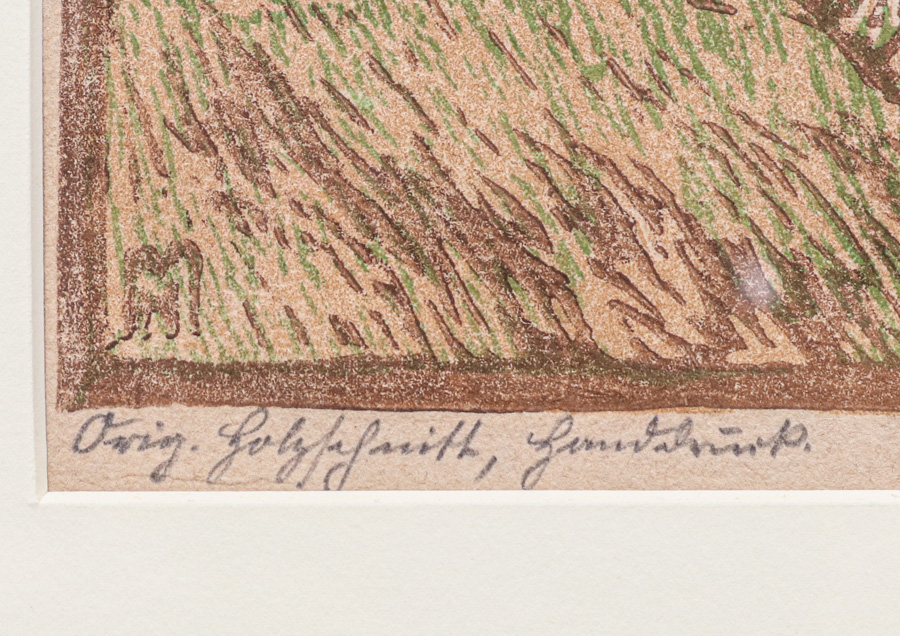 Orig. Holzschnitt, Handdruck.